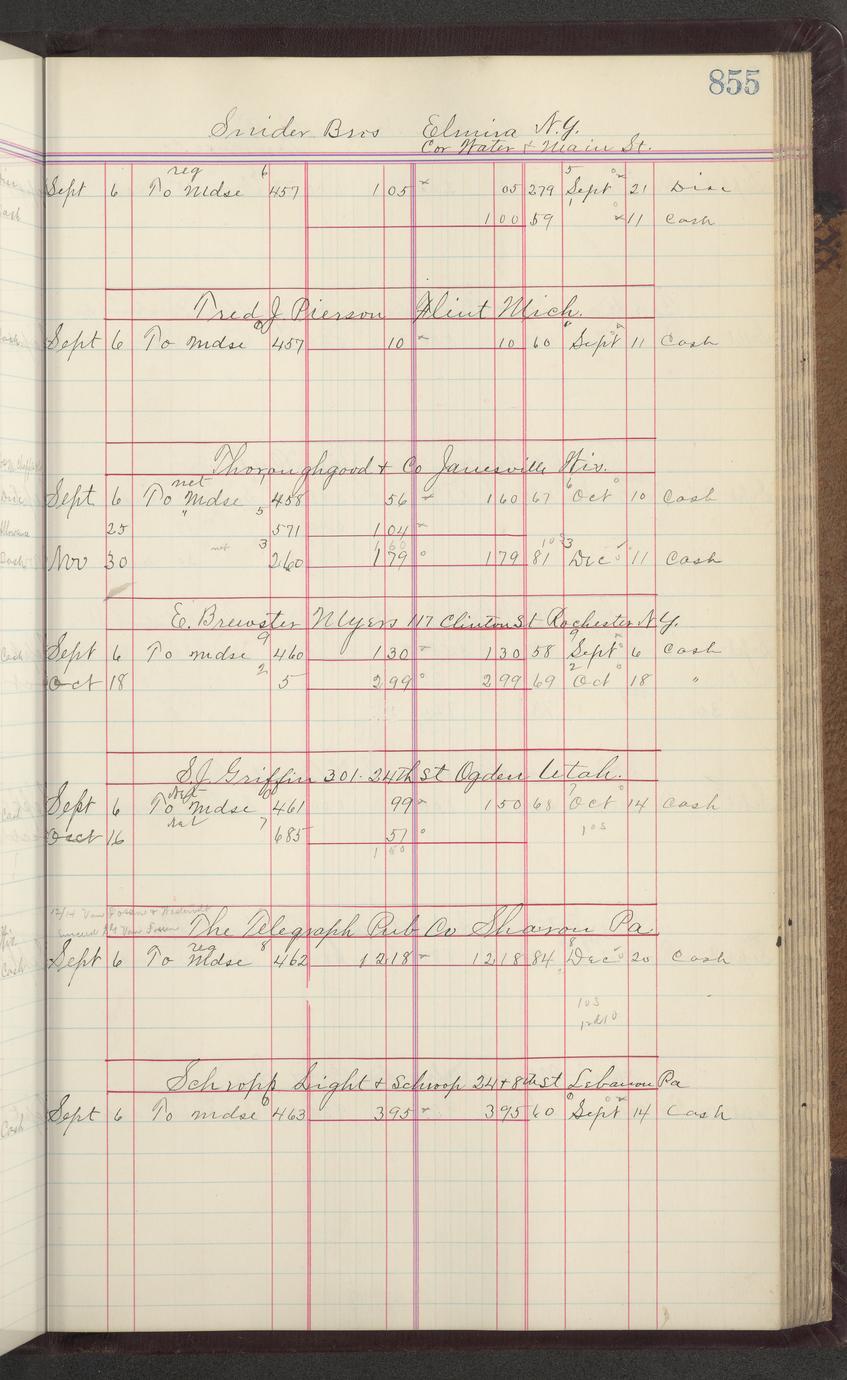 855
Snider Bros Elmira N.Y.
Cor Water & Main St.
reg 6 5
Sept 6 To Mdse 457 1 05 05 279 Sept 21 Disc
1 00 59 11 Cash
Fred J. Pierson Flint Mich.
Sept 6 To Mdse 6 457 10 10 60 Sept 11 Cash
Thoroughgood & Co Janesville Wis.
net
Sept 6 To Mdse 458 56 1 60 67 6 Oct 10 Cash
25 " 5 571 1 04
1 60
Nov 30 net 3 260 1 79 1 79 81 3 Dec 11 Cash
E. Brewster Myers 117 Clinton St Rochester N.Y.
Sept 6 To mdse 9 460 1 30 1 30 58 9 Sept 6 Cash
Oct 18 2 5 2 99 2 99 69 2 Oct 18 "
S.J. Griffin 301-24th St Ogden Utah.
Sept 6 To Mdse 461 99 1 50 68 7 Oct 14 Cash
Oct 16 7 685 51 103
1 50
The Telegraph Pub Co Sharon Pa.
reg
Sept 6 To Mdse 8 462 12 18 12 18 84 8 Dec 20 Cash
103
Schropp Light & Schroop 24 & 8th St Lebanon Pa
Sept 6 To mdse 6 463 3 95 3 95 60 6 Sept 14 Cash